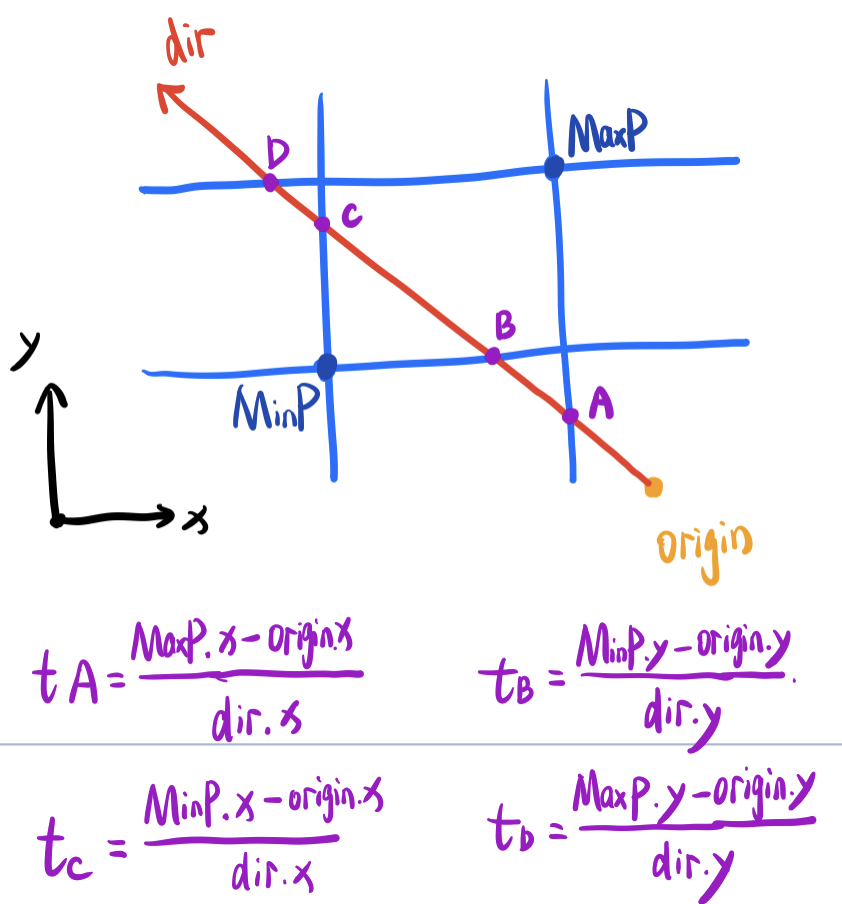 dir
D
MaxP
C
B
y
MinP
A
x
origin
tA = MaxP.x - origin.x / dir.x
tB = MinP.y - origin.y / dir.y
tC = MinP.x - origin.x / dir.x
tD = MaxP.y - origin.y / dir.y